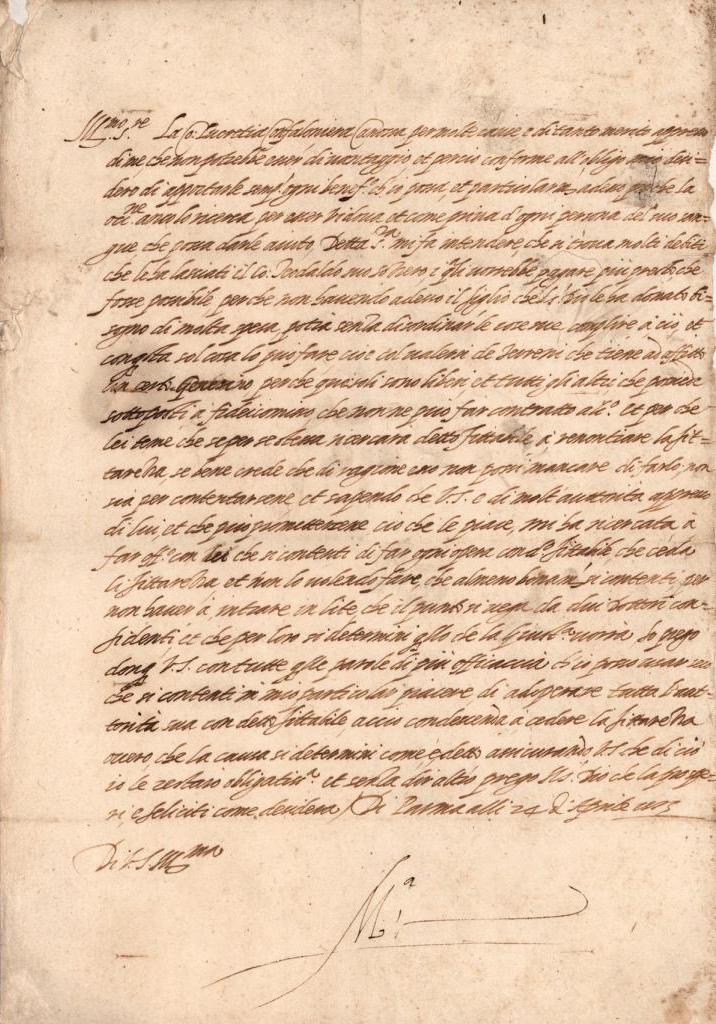 Ill.mo S.re La Co: Lucretia Confaloniera Canossa per molte cause è di tanto merito appresso
di me che non potrebbe esser di vantaggio et perciò conforme all'obligo mio desi=
dero di apportarle semp.e ogni benef.o ch'io possa, et particularm.te adesso per che la
occ.ne ancolo ricerca, per esser vidova et come priva d'ogni persona del suo san=
gue che possa darle aiuto, Detta S.ra mi fa intendere, che si trova molti debiti
che le ha lasciati il Co: Teodaldo suo Socero i q.li vorrebbe pagare più presto che
fosse possibile, perche non havendo adesso il figlio che Dio le ha donato bi=
sogno di molta spesa, potrà senza disordinar le cose sue supplire a ciò, et
con q.lta sol cosa lo può fare, cioè col valersi de Terreni che tiene ad affitto
un certo perche questi soli sono liberi et tutti gli altri che possede
sottoposti à fideicomisso che non ne può far contratto al.o Et per che
lei teme che se per se stessa ricercarà detto fittabile, à renontiare la fit=
tarezza, se bene crede che di ragione esso non possi mancare di farlo, non
sia per contentarsene et sapendo che V.S. è di molt'auttorità appresso
di lui et che può promettersene ciò che le piace, mi ha ricercata à
far off.o con lei che si contenti di far ogni opera con d.o fittabile che ceda
la fittarezza et non lo volendo fare, che almeno si contenti per
non haver à intrare in lite, che il punto si vegga da dui Dottori con=
fidenti et che per loro si determini q.llo che la Giustit.a vorrà Io prego
donq. V.S. con tutte q.lle parole di più efficaccia ch'io posso usar seco
che si contenti in mio particular piacere di adoperare tutta l'aut=
torità sua con detto fittabile, acciò condescenda à cedere la fittarezza
overo, che la causa si determini come è detto assicurando V.S. che di ciò
io le restarò obligatiss.a et senza dir altro prego N.S. Dio che la prospe=
ri, e feliciti come desidera, Di Parma alli 24 d'Aprile
Di V.S. Ill.ma